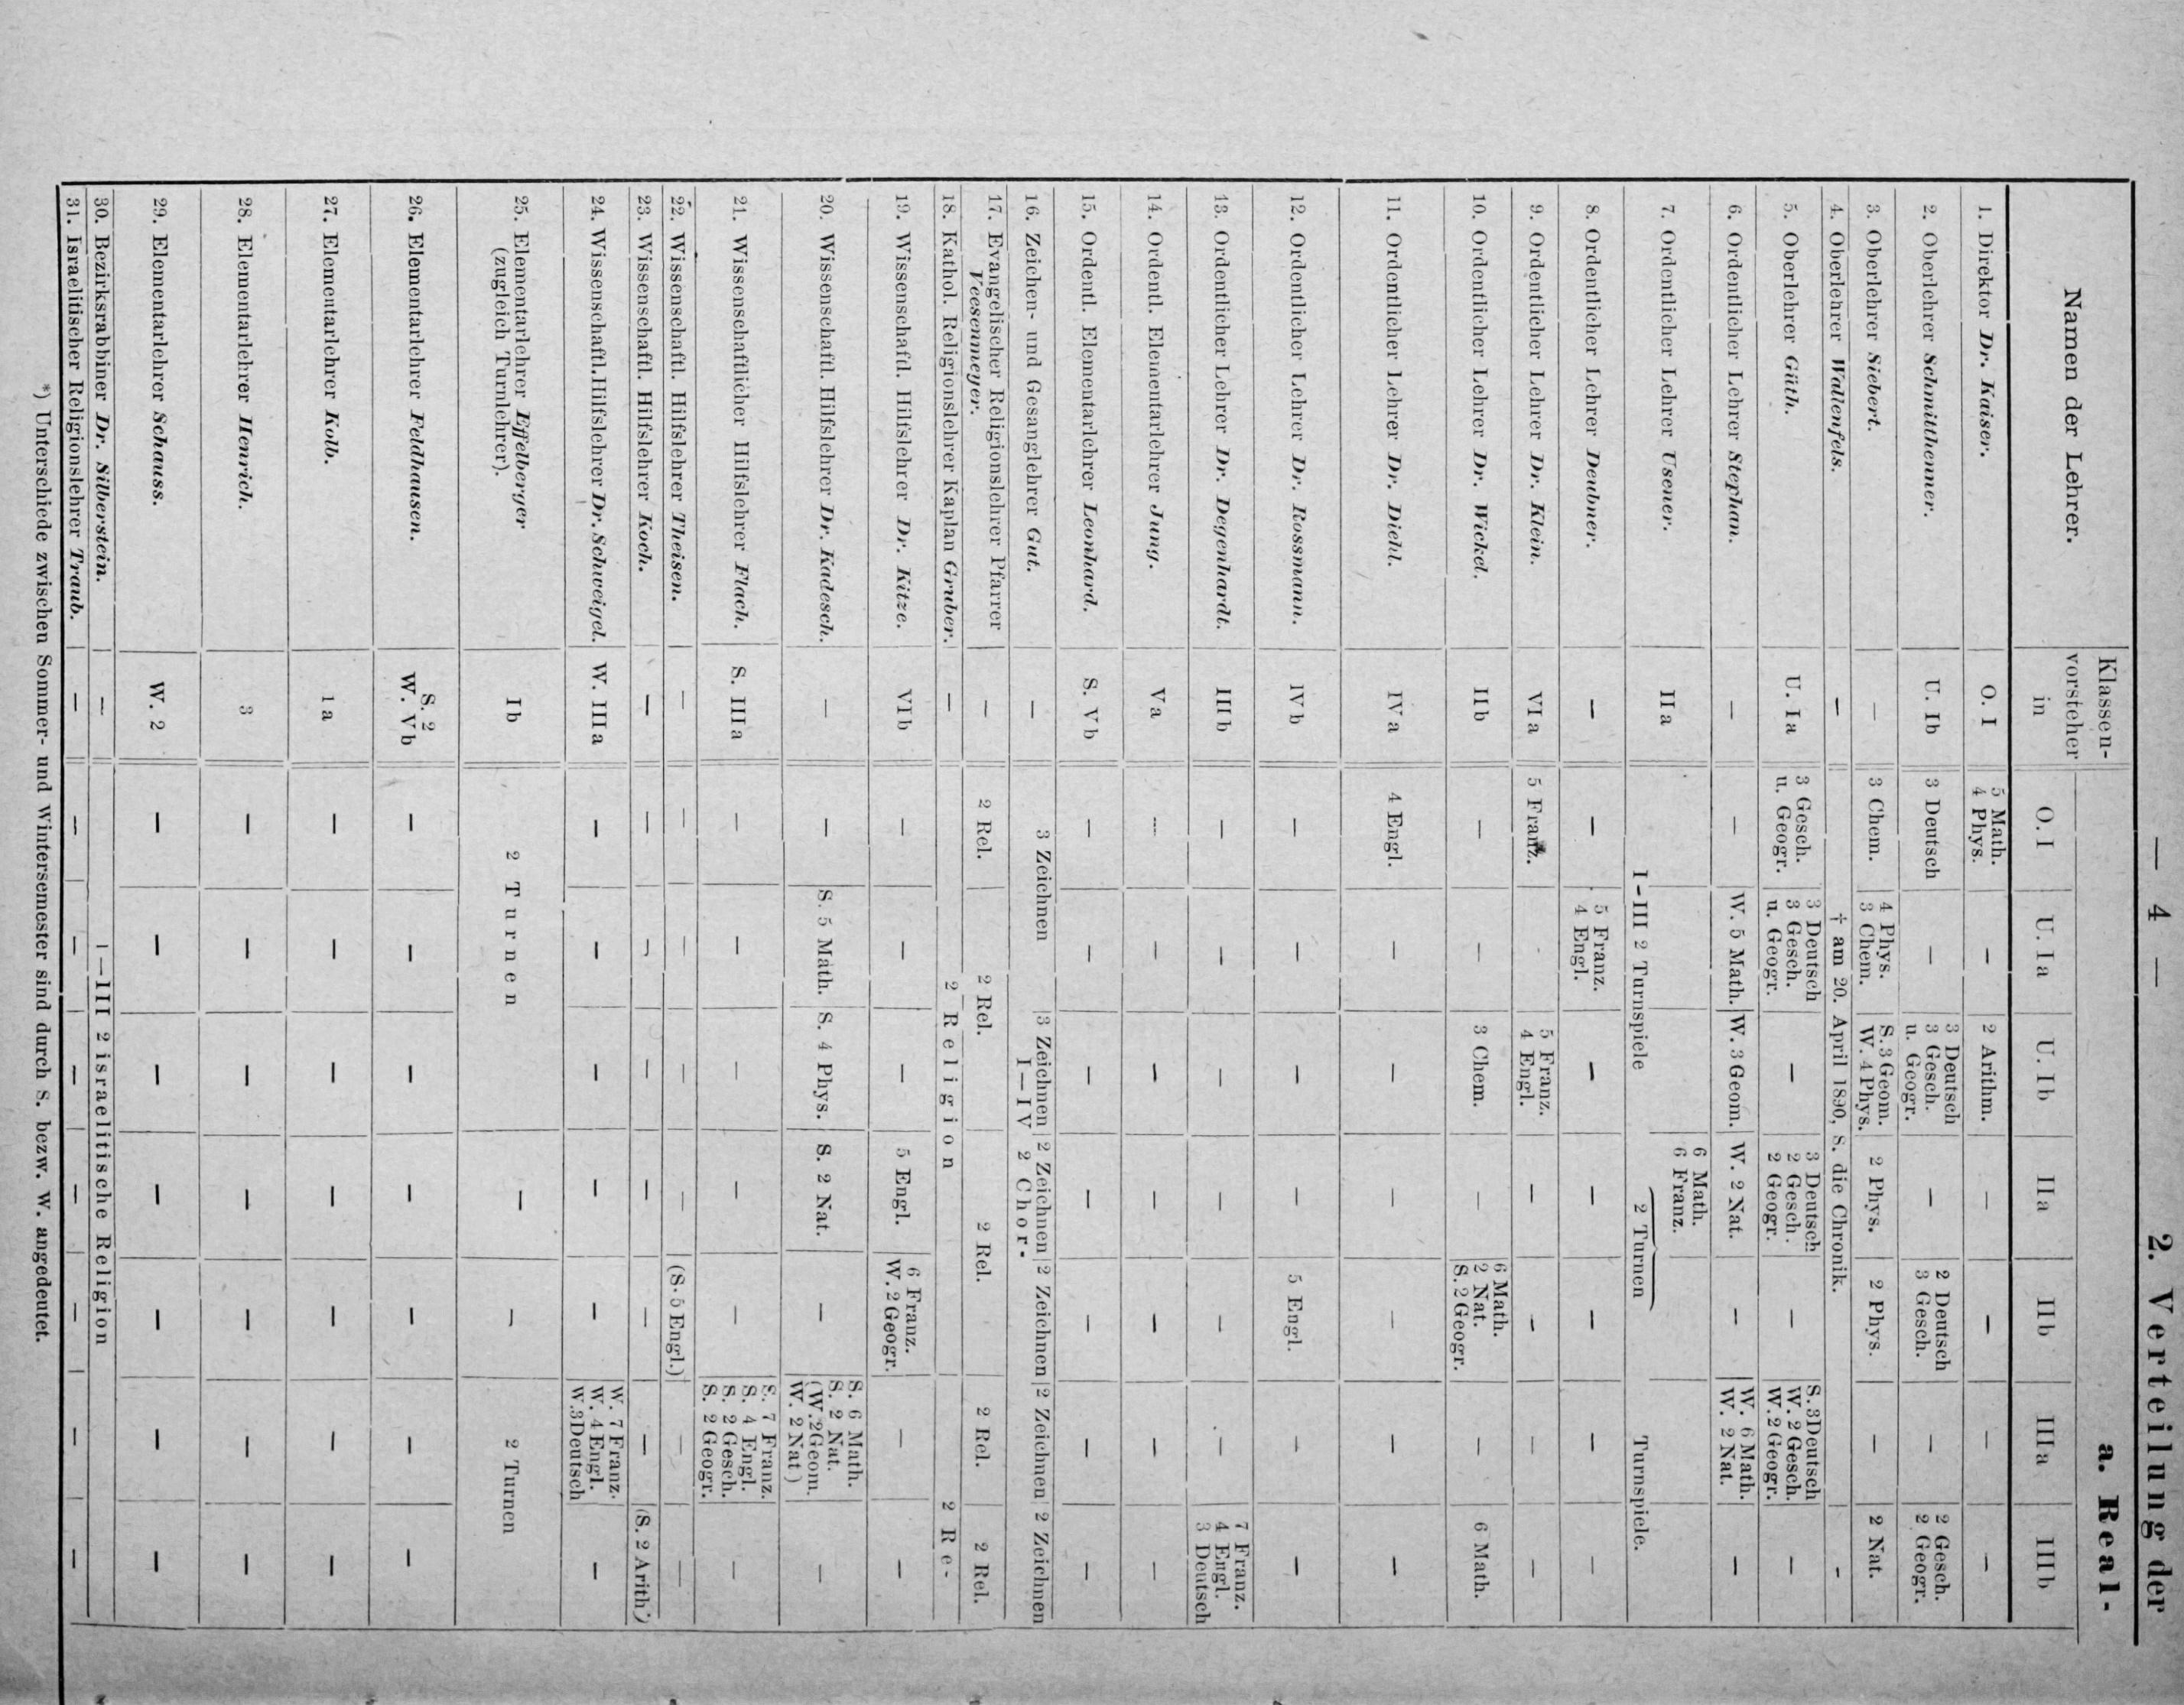 — 4 —
2. Verteilung der
a. Real-
Namen der Lehrer.
Klassen-
vorsteher
in
O. I
U. Ia
U. Ib
IIa
IIb
IIIa
IIIb
1. Direktor Dr. Kaiser.
O. I
5 Math.
4 Phys.
—
2 Arithm.
—
—
—
—
2. Oberlehrer Schmitthenner.
U. Ib
3 Deutsch
—
3 Deutsch
3 Gesch.
u. Geogr.
—
2 Deutsch
3 Gesch.
—
2 Gesch.
2 Geogr.
3. Oberlehrer Siebert.
—
3 Chem.
4 Phys.
3 Chem.
S. 3 Geom.
W. 4 Phys.
2 Phys.
2 Phys.
—
2 Nat.
4. Oberlehrer Wallenfels.
—
† am 20. April 1890, s. die Chronik.
-
5. Oberlehrer Güth.
U. Ia
3 Gesch.
u. Geogr.
3 Deutsch
3 Gesch.
u. Geogr.
—
3 Deutsch
2 Gesch.
2 Geogr.
—
S. 3 Deutsch
W. 2 Gesch.
W. 2 Geogr.
—
6. Ordentlicher Lehrer Stephan.
—
—
W. 5 Math.
W. 3 Geom.
W. 2 Nat.
—
W. 6 Math.
W. 2 Nat.
—
7. Ordentlicher Lehrer Usener.
IIa
6 Math.
6 Franz.
I-III 2 Turnspiele
2 Turnen
Turnspiele.
8. Ordentlicher Lehrer Deubner.
—
—
5 Franz.
4 Engl.
—
—
—
—
—
9. Ordentlicher Lehrer Dr. Klein.
VIa
5 Franz.
-
5 Franz.
4 Engl.
—
—
—
—
10. Ordentlicher Lehrer Dr. Wickel.
IIb
—
—
3 Chem.
—
6 Math.
2 Nat.
S. 2 Geogr.
—
6 Math.
11. Ordentlicher Lehrer Dr. Diehl.
IVa
4 Engl.
—
—
—
—
—
—
12. Ordentlicher Lehrer Dr. Rossmann.
IVb
—
—
—
—
5 Engl.
—
—
13. Ordentlicher Lehrer Dr. Degenhardt.
IIIb
—
—
—
—
—
—
7 Franz.
4 Engl.
3 Deutsch
14. Ordentl. Elementarlehrer Jung.
Va
—
—
—
—
—
—
—
15. Ordentl. Elementarlehrer Leonhard.
S. Vb
—
—
—
—
—
—
—
16. Zeichen- und Gesanglehrer Gut.
—
3 Zeichnen
3 Zeichnen
2 Zeichnen
2 Zeichnen
2 Zeichnen
2 Zeichnen
I—IV 2 Chor-
17. Evangelischer Religionslehrer Pfarrer
Veesenmeyer.
—
2 Rel.
2 Rel.
2 Rel.
2 Rel.
2 Rel.
18. Kathol. Religionslehrer Kaplan Gruber.
—
2 Religion
2 Re-
19. Wissenschaftl. Hilfslehrer Dr. Kitze.
VIb
—
—
—
5 Engl.
6 Franz.
W. 2 Geogr.
—
—
20. Wissenschaftl. Hilfslehrer Dr. Kadesch.
—
—
S. 5 Math.
S. 4 Phys.
S. 2 Nat.
—
S. 6 Math.
S. 2 Nat.
(W. 2 Geom.
W. 2 Nat)
—
21. Wissenschaftlicher Hilfslehrer Flach.
S. IIIa
—
—
—
—
—
S. 7 Franz.
S. 4 Engl.
S. 2 Gesch.
S. 2 Geogr.
—
22. Wissenschaftl. Hilfslehrer Theisen.
—
—
—
—
—
(S. 5 Engl.)
—
—
23. Wissenschaftl. Hilfslehrer Koch.
—
—
—
—
—
—
—
(S. 2 Arith*)
24. Wissenschaftl. Hilfslehrer Dr. Schweigel.
W. IIIa
—
—
—
—
—
W. 7 Franz.
W. 4 Engl.
W. 3 Deutsch
—
25. Elementarlehrer Effelberger
(zugleich Turnlehrer).
Ib
2 Turnen
—
—
2 Turnen
26. Elementarlehrer Feldhausen.
S. 2
W. Vb
—
—
—
—
—
—
—
27. Elementarlehrer Kolb.
1a
—
—
—
—
—
—
—
28. Elementarlehrer Henrich.
3
—
—
—
—
—
—
—
29. Elementarlehrer Schauss.
W. 2
—
—
—
—
—
—
—
30. Bezirksrabbiner Dr. Silberstein.
—
I—III 2 israelitische Religion
31. Israelitischer Religionslehrer Traub.
—
—
—
—
—
—
—
—
*) Unterschiede zwischen Sommer- und Wintersemester sind durch S. bezw. W. angedeutet.